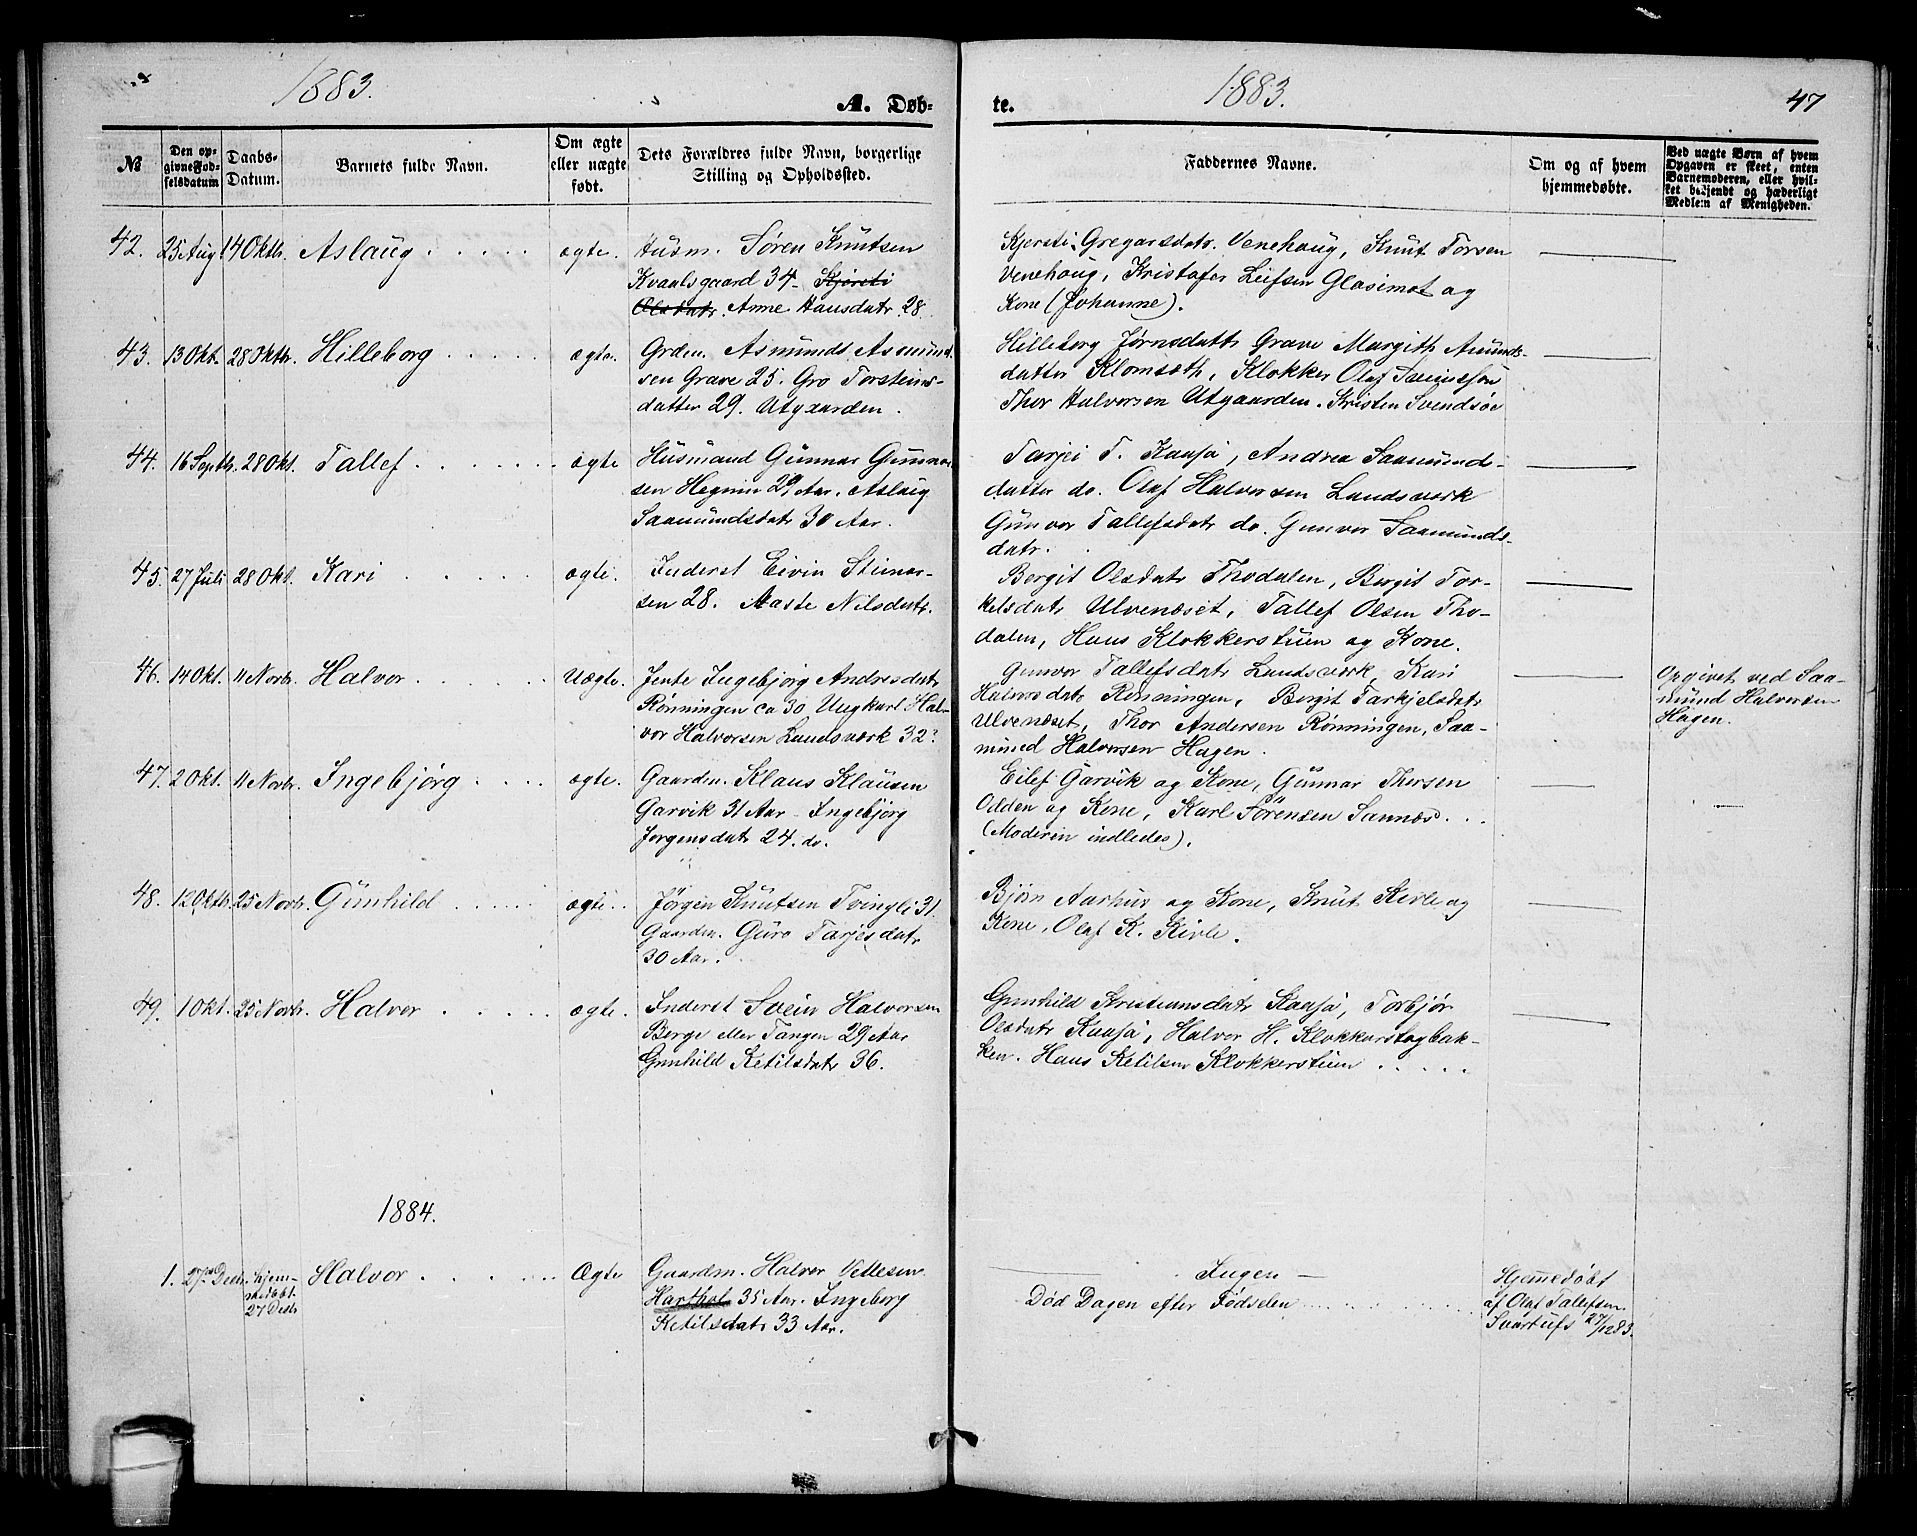 1883.
A. Døb-
№
Den op-
givne Fød-
selsdatum
Daabs-
Datum.
Barnets fulde Navn.
Om ægte
eller uægte
født.
Dets Forældres fulde Navn, borgerlige
Stilling og Opholdssted.
42. 25 Aug. 14 Oktb. Aslaug ægte. Husm. Søren Knutsen
Kvaalsgaard 34 - Kjersti
Olsdatr. Anne Hansdatr 28.
43. 13 Okt. 28 Oktb. Hilleborg ægte. Grdm. Asmund Asmund-
sen Grave 25. Gro Torsteins-
datter 29. Utgaarden.
44. 16 Septb. 28 Okt. Tallef ægte Husmand Gunnar Gunnar-
sen Hegnin 29 Aar. Aslaug
Saamundsdatr 30 Aar.
45. 27 Juli 28 Okt. Kari ægte. Inderst Eivin Steinar-
sen 28. Aaste Nilsdatr.
46. 14 Okt. 11 Novb. Halvor Uægte. Jente Ingebjørg Andresdatr
Rønningen ca 30 Ungkarl Hal-
vor Halvorsen Landsværk 32?
47. 2 Okt. 11 Novb. Ingebjørg ægte. Gaardm. Klaus Klausen
Garvik 31 Aar - Ingebjørg
Jørgensdatr 24. do.
48. 12 Oktb. 25 Novb. Gunhild ægte. Jørgen Knutsen Tvingli 31.
Gaardm. Guro Tarjesdatr
30 Aar.
49. 1 Okt. 25 Novb. Halvor ægte. Inderst Svein Halvorsen
Berge eller Tangen 29 Aar
Gunhild Ketilsdatr 36.
1884.
1. 27de Decb. hjem-
medøbt.
27 Decb Halvor Ægte Gaardm. Halvor Vetlesen
Harthol 35 Aar. Ingeborg
Ketilsdatr 33 Aar.
1883.
47
te.
Faddernes Navne.
Om og af hvem
hjemmedøbte.
Ved uægte Børn af hvem
Opgaven er skeet, enten
Barnemoderen, eller hvil-
ket bekjendt og hæderligt
Medlem af Menigheden.
Kjersti Gregarsdatr. Venehaug, Knut Torsen
Venehaug, Kristofer Leifsen Glasimot og
Kone (Johanne).
Hilleborg Jørnsdatts Grave Margith Amunds-
datter Klomseth, Klokker Olaf
Thor Halvorsen Utgaarden. Kristen Svendsøe
Tarjei T. Kaasa, Andrea Saamunds-
datter do. Olaf Halvorsen Landsværk
Gunvor Tallefsdatr do. Gunvor Saamunds-
datr.
Bergit Olsdatr Thodalen, Bergit Tor-
kelsdatr Ulvenæset, Tallef Olsen Tho-
dalen, Hans Klokkerstuen og Kone.
Gunvor Tallefsdatr Landsværk, Kari
Halvorsdatr Rønningen, Bergit Tarkjelsdatr
Ulvenæset, Thor Andersen Rønningen, Saa-
mund Halvorsen Hagen.
Opgivet ved Saa-
mund Halvorsen
Hagen.
Eilef Garvik og Kone, Gunnar Thorsen
Odden og Kone, Karl Sørensen Sannæs.
(Moderen indledes).
Bjørn Aarhus og Kone, Knut Kivle og
Kone, Olaf K. Kivle.
Gunhild Kristiansdatr Kaasa, Torbjør
Olsdatr Kaasa, Halvor H. Klokkarstogbak-
ken. Hans Ketilsen Klokkerstuen
Ingen
Død Dagen efter Fødselen
Hjemmedøbt
af Olaf Tallefsen
Svartufs 27/12 83.